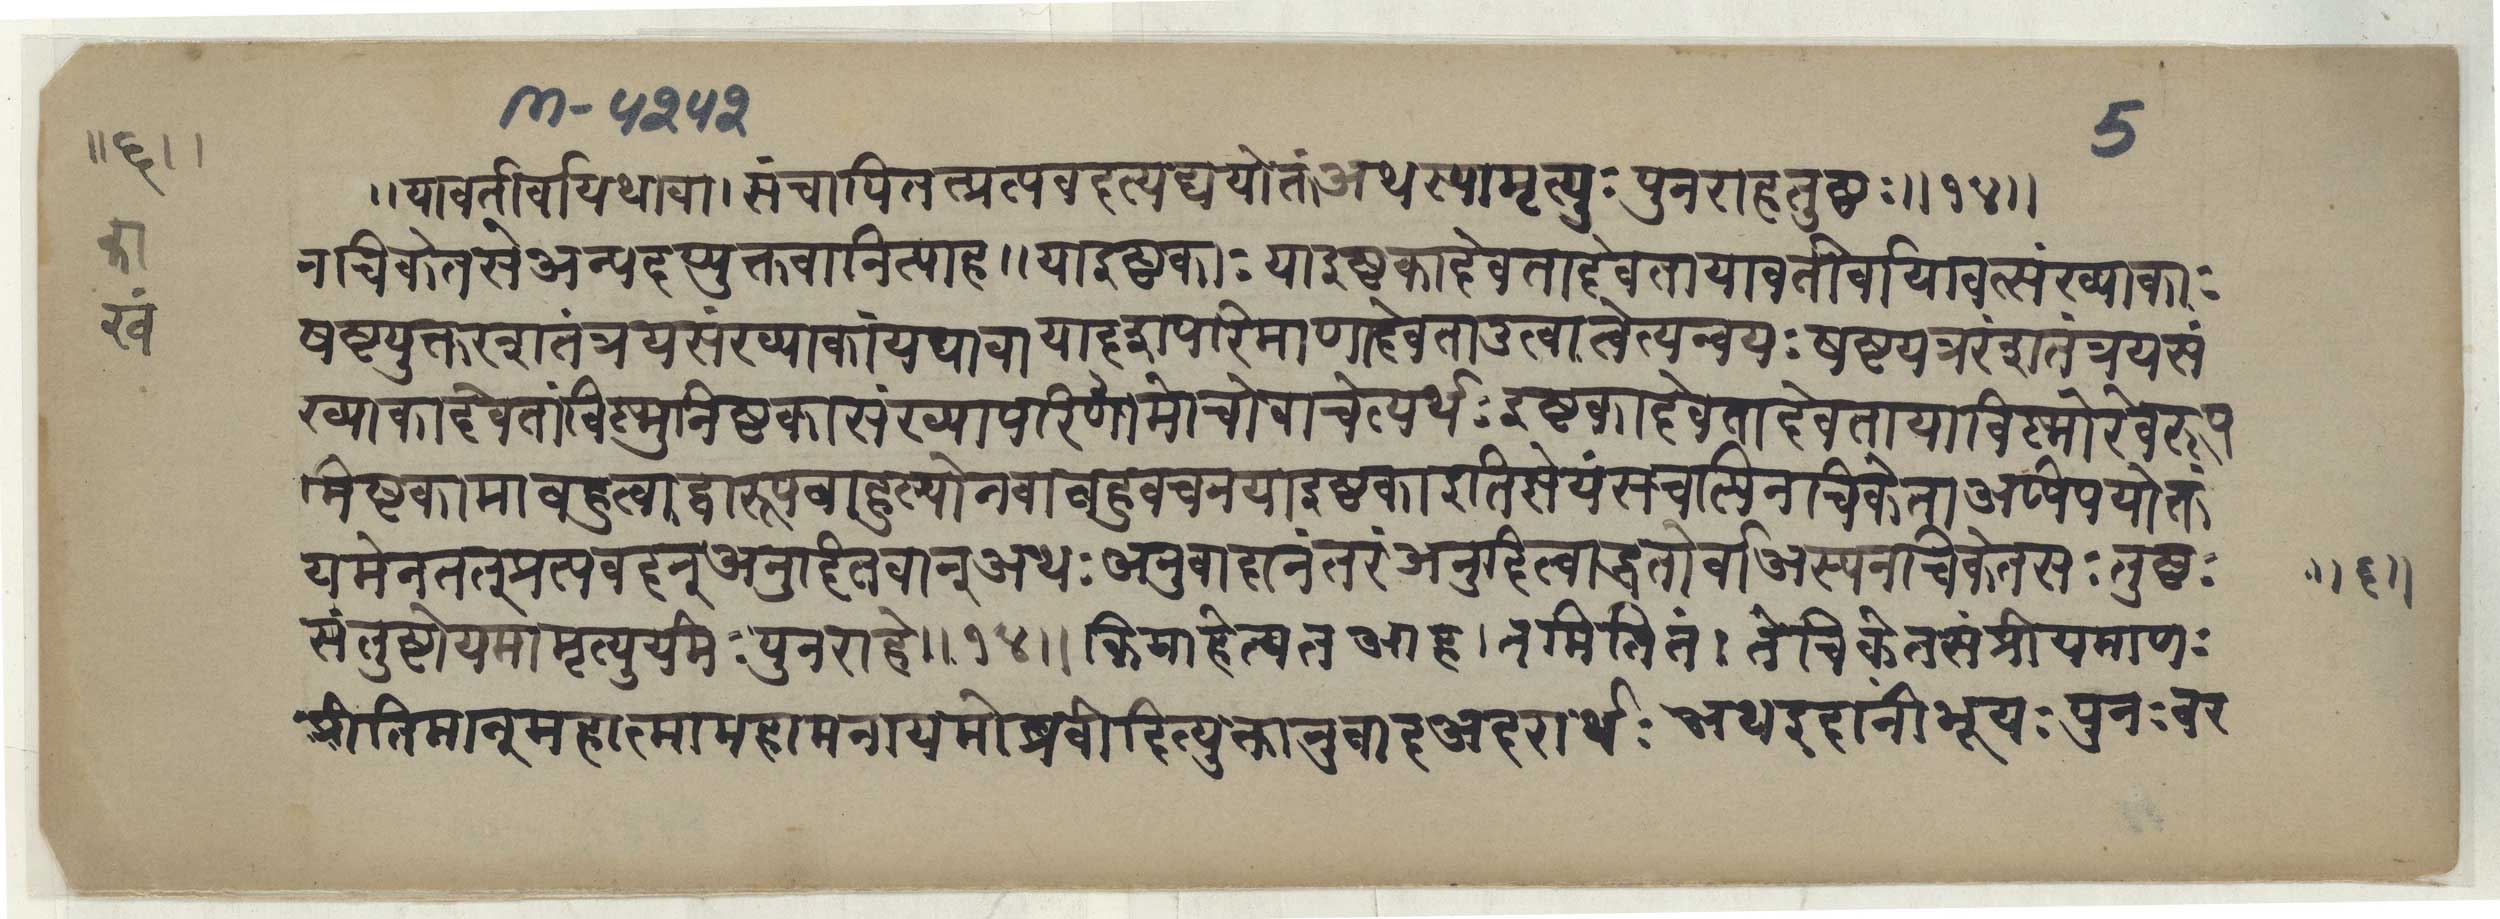 m-५२५२
5
॥६॥
का
खं
॥यावतीर्वायथावा।संचापितत्प्रत्यवहत्यद्ययोतंअथस्यामृत्युःपुनराहतुष्टः॥१४॥
नचिकेतसेअन्यदप्युक्तवानित्याह॥याइष्टकाःयाइष्टकादेवतादेवतायावतीर्वायावत्संख्याकाः
षष्ट्युत्तरशतंत्रयसंख्याकांयथावायादृशपरिमाणादेवताउत्कात्वेत्यन्वयःषष्ट्यत्ररंशतंत्रयसं
ख्याकादेवतांविष्णुनिष्टकासंख्यापरिणामोचोवाचेत्यर्थःइष्टकादेवतादेवतायाविष्णोरेवरूप
मिष्टकामाबहुत्वाद्वारूपबाहुल्योनवाबहुवचनयाइष्टकाइतिसेयंसचालिनचिकेताअपिपयोक्तं
यमेनतत्प्रत्यवहन्अनुदितवान्अथःअनुवादानंतरंअनुदित्वाद्धतोर्वाअस्यनचिकेतसःतुष्टः
॥६॥
संतुष्टोयमोमृत्युर्यमःपुनराहे॥१४॥किमाहेत्यतआह।तमितितं।तेचिकेतसंप्रीयमाणः
प्रीतिमान्महात्मामहामनायमोब्रवीदित्युक्तानुवादअहरार्थःअथइदानींभूयःपुनःवर